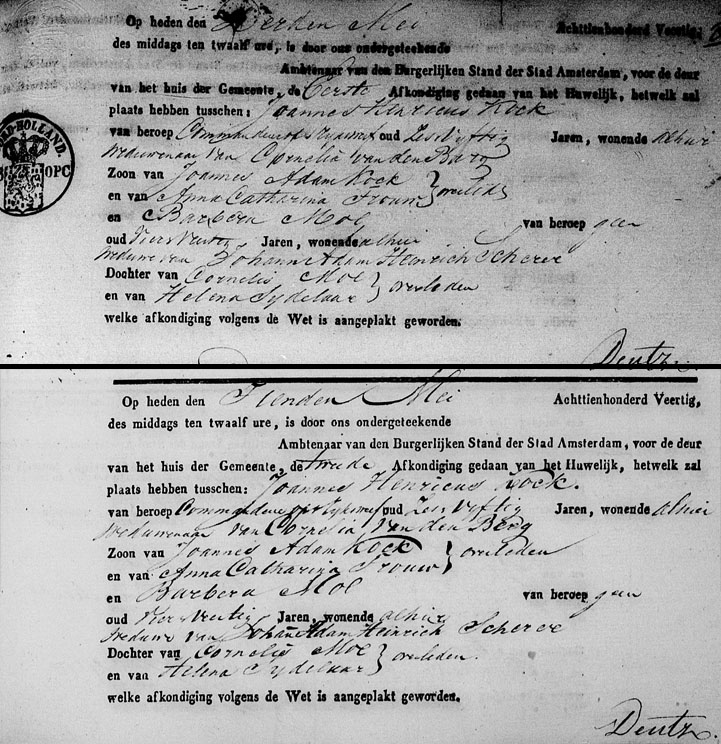 Op heden den Derden Mei Achttienhonderd Veertig,
des middags ten twaalf ure, is door ons ondergeteekende
Ambtenaar van den Burgerlijken Stand der Stad Amsterdam, voor de deur
van het huis der Gemeente, de Eerste Afkondiging gedaan van het Huwelijk, hetwelk zal
plaats hebben tusschen: Joannes Henricus Kock
van beroep oud Zes Vyftig Jaren, wonende alhier
Weduwenaar van Cornelia van den Berg
Zoon van Joannes Adam Kock
en van Anna Catharina Trouw } overleden
en Barbera Mol van beroep geen
oud Vier Veertig Jaren, wonende alhier
Weduwe van Johann Adam Heinrich Scherer
Dochter van Cornelis Mol
en van Helena Sydelaar } overleden
welke afkondiging volgens de Wet is aangeplakt geworden.
Deutz
HOLLAND.
OPC
Op heden den Tienden Mei Achttienhonderd Veertig,
des middags ten twaalf ure, is door ons ondergeteekende
Ambtenaar van den Burgerlijken Stand der Stad Amsterdam, voor de deur
van het huis der Gemeente, de tweede Afkondiging gedaan van het Huwelijk, hetwelk zal
plaats hebben tusschen: Joannes Henricus Kock.
van beroep oud Zes Vyftig Jaren, wonende alhier
Weduwenaar van Cornelia van den Berg
Zoon van Joannes Adam Kock
en van Anna Catharina Trouw } overleden
en Barbera Mol van beroep geen
oud Vier Veertig Jaren, wonende alhier
Weduwe van Johann Adam Heinrich Scherer
Dochter van Cornelis Mol
en van Helena Sydelaar } overleden.
welke afkondiging volgens de Wet is aangeplakt geworden.
Deutz